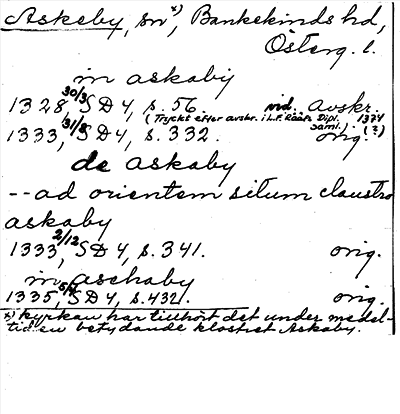 Askeby, sn ×), Bankekinds hd,
Österg. l.
in askaby
1328, 30/3 SD 4, s. 56. vid. avskr.
(Tryckt efter avskr. i L.F. Rääfs Dipl. saml.) 1374 (?)
1333, 31/8 SD 4, s. 332. orig.
de askaby
-- ad orientem situm claustro
askaby
1333, 2/12 SD 4, s. 341. orig.
in aschaby
1335, SD 4, s. 432. orig.
×) kyrkan har tillhört det under medel-
tiden betydande klostret Askaby.